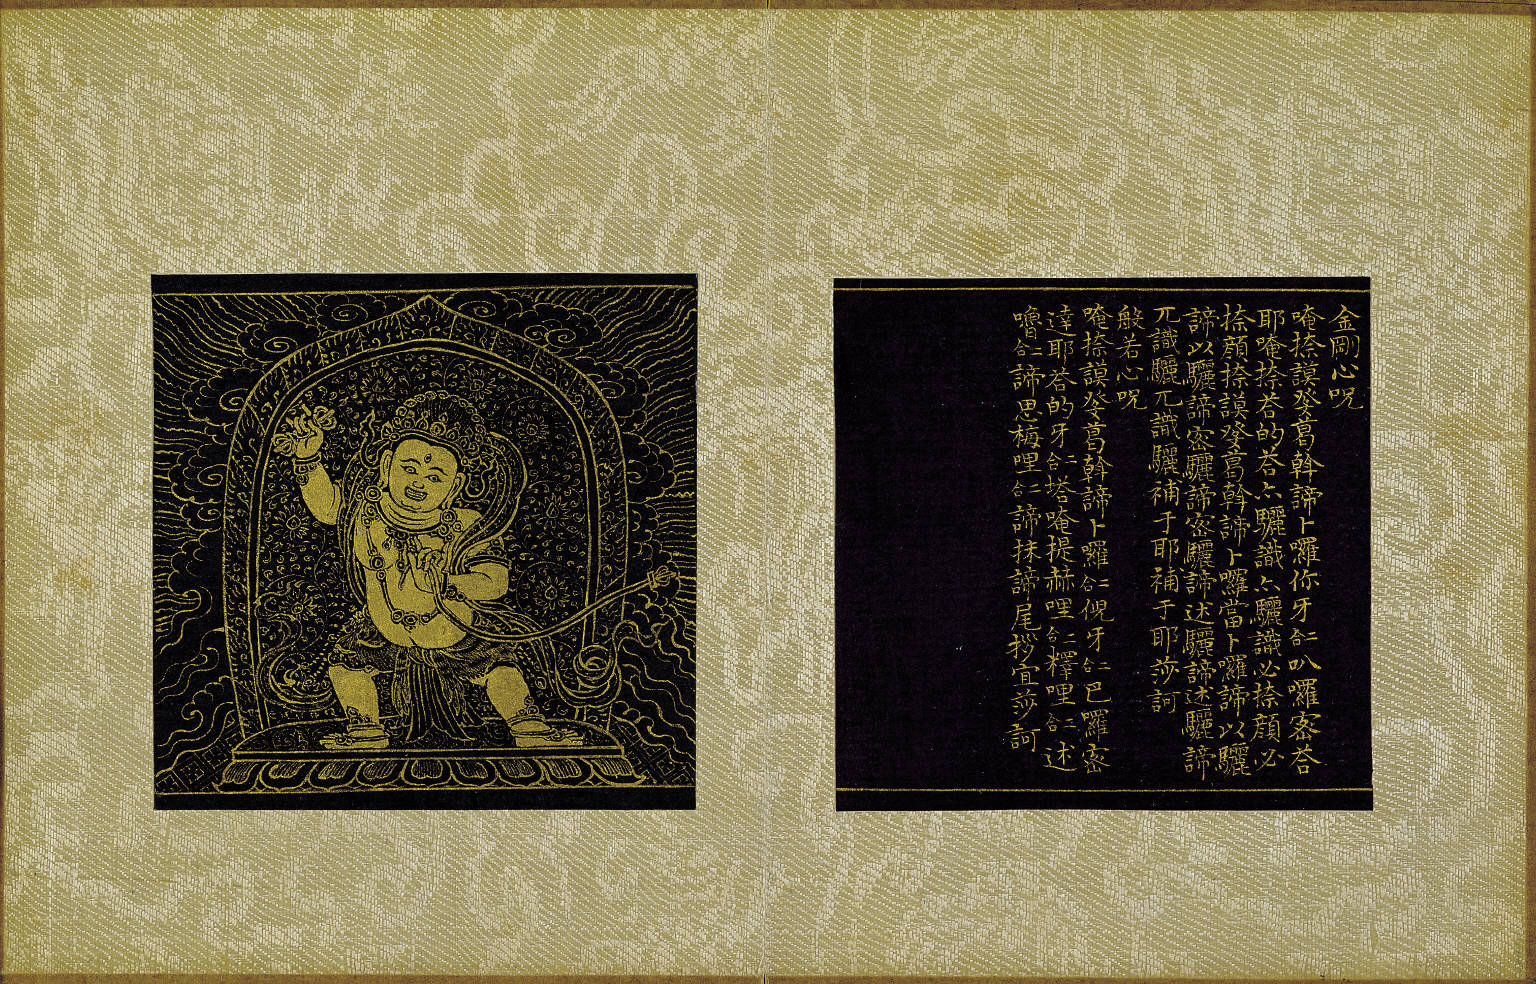 金剛心呪
唵捺謨癹葛斡諦卜囉你牙仁叭囉密荅
耶唵捺荅的荅亦驪識亦驪識必捺顏必
捺顏捺謨癹葛斡諦卜囉當卜囉諦以驪
諦以驪諦密驪諦密驪諦述驪諦述驪諦
兀識驪兀識驪補于耶補于耶莎訶
般若心呪
唵捺謨癹葛斡諦卜囉二合倪牙二合巴囉密
達耶荅的牙二合塔唵提赫哩二合釋哩二合述
嚕二合諦思梅哩二合諦抹諦尾拶宜莎訶